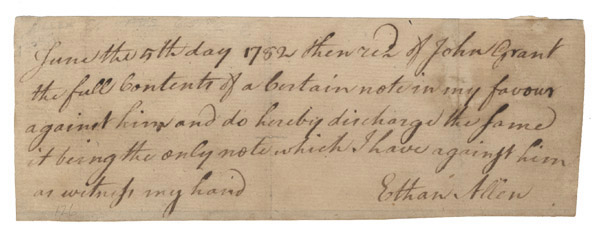 June the 5th day 1782 then rec'd of John Grant
the full Contents of a Certain note in my favour
against him and do hereby discharge the same
it being the only note which I have against him
as witness my hand Ethan Allen